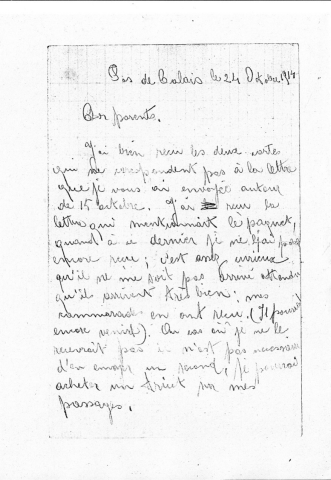 Pas de Calais le 24 Octobre 1914
Cer parents,
J'ai bien reçu les deux cartes
qui ne corespondent pas à la lettre
que je vous ai envoyée autour
de 15 octobre. J'ai reçu la
lettre qui mentionnait le paquet,
quand à ce dernier je ne l'ai pas
encore reçu; c'est curieux
qu'il ne me soit pas arrivé attendu
qu'ils arrivent très bien; mes
cammarades en ont reçu (Il pourrait
encore venir). Au cas où je ne le
recevrait pas il n'est pas nécessaire
d'en envoyer un second, je pourrai
acheter un tricot sur mes
passages.